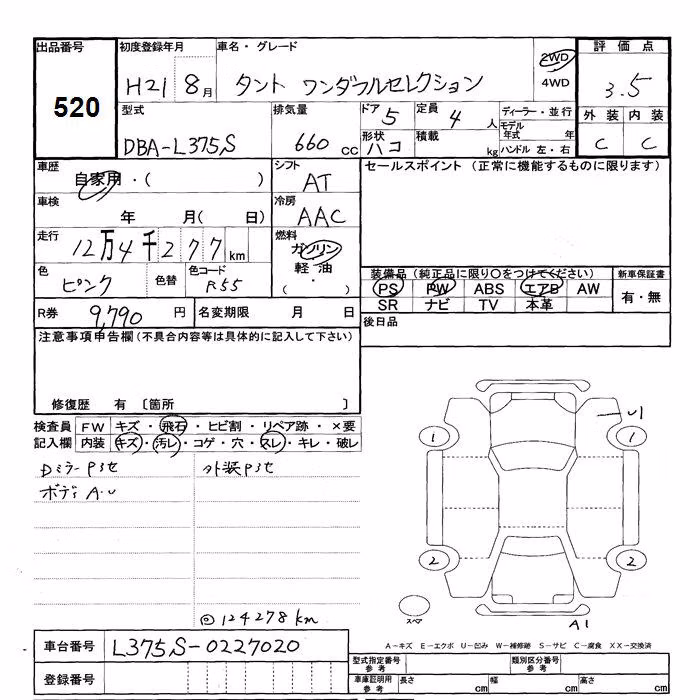 出品番号 初度登録年月 車名・グレード 2WD 評価点
520 H21 8月 タント ワンダフルセレクション 4WD 3.5
型式 排気量 ドア 5 定員 4人 ディーラー・並行 外装 内装
DBA-L375S 660cc 形状 ハコ 積載 kg モデル年式 年 C C
ハンドル 左・右
車歴 自家用・( ) シフト AT セールスポイント (正常に機能するものに限ります)
車検 年 月( 日) 冷房 AAC
走行 12万4千277km 燃料 ガソリン
軽油
( ・ )
色 ピンク 色替 色コード R55 装備品 (純正品に限り○をつけてください) 新車保証書
PS PW ABS エアB AW 有・無
SR ナビ TV 本革
R券 9,790円 名変期限 月 日 後日品
注意事項申告欄 (不具合内容等は具体的に記入して下さい)
修復歴 有 〔箇所 〕
検査員 FW キズ・飛石・ヒビ割・リペア跡・×要
記入欄 内装 キズ・汚レ・コゲ・穴・スレ・キレ・破レ
DミラーPョセ 外装Pョセ
ボディA.U
U1
1 1
2 2
スペア
A1
◎124278km
A-キズ E-エクボ U-凹み W-補修跡 S-サビ C-腐食 XX-交換済
車台番号 L375S-0227020
型式指定番号 参考 類別区分番号 参考
登録番号 車庫証明用 参考 長さ cm 幅 cm 高さ cm